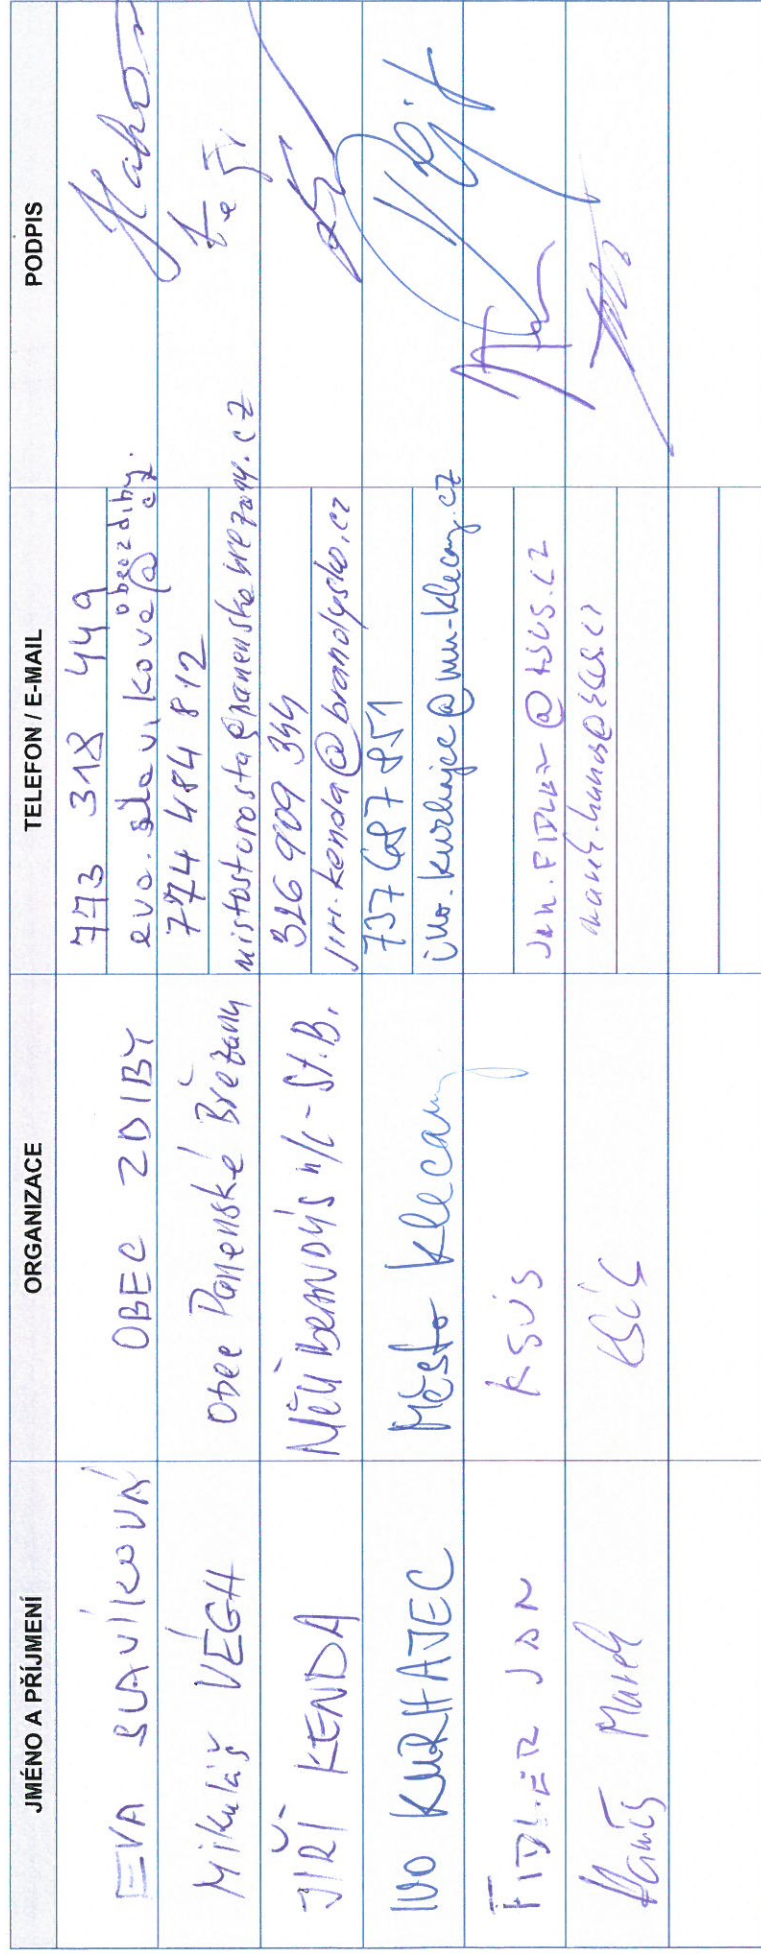 JMÉNO A PŘÍJMENÍ ORGANIZACE TELEFON / E-MAIL PODPIS
EVA SLAVÍKOVÁ OBEC ZDIBY 773 318 449
eva.slavikova@obeczdiby.cz
Mikuláš VÉGH Obec Panenské Břežany 774 484 812
mistostarosta@panenskebrezany.cz
JIŘÍ KENDA MěÚ BRANDÝS n/L - St.B. 326 909 344
jiri.kenda@brandysko.cz
IVO KURHAJEC Město Klecany 737 687 851
ivo.kurhajec@mu-klecany.cz
FIDLER JAN KSÚS
Jan.FIDLER@KSUS.CZ
Marek KSÚS